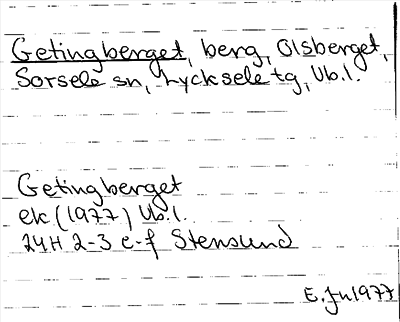 Getingberget, berg, Olsberget,
Sorsele sn, Lycksele tg, Vb.l.
Getingberget
ek (1977) Vb.l.
24H 2-3 e-f Stensund
E. Jn 1977